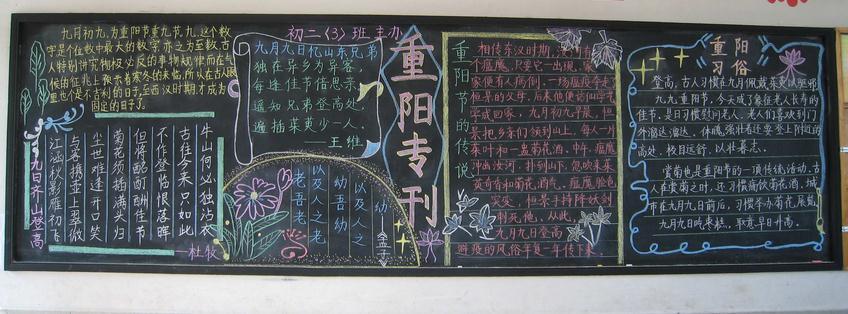 九月初九,为重阳节素九节,九,这个数
字是个位数中最大的数字,亦之为至数,古
人特别讲究物极必反的事物规律而在气
候的征兆上预示着寒冬的来临,所以在古人眼
里也不是不吉利的日子,至西汉时期,才成为
固定的日子了。
九日齐山登高
江涵秋影雁初飞
与客携壶上翠微
尘世难逢开口笑
菊花须插满头归
但将酩酊酬佳节
不作登临恨落晖
古往今来只如此
牛山何必独沾衣
—杜牧
初二〈3〉班主办
九月九日忆山东兄弟
独在异乡为异客,
每逢佳节倍思亲。
遥知兄弟登高处,
遍插茱萸少一人。
——王维
老吾老
以及人之老
幼吾幼
以及人之
幼
—孟子
重阳专刊
重阳节的传说
相传东汉时期,
个瘟魔,只要它一出现,家
家便有人病倒,一场瘟疫夺走了
恒景的父母,后来他访仙学艺
学成回家,九月初九早晨,恒
景把乡亲们领到山上,每人一片
茱萸叶一盅菊花酒,中午,瘟魔
冲出汝河,扑到山下,忽吹来茱
萸奇香和菊花酒气,瘟魔脸色
突变,恒景手持降妖剑
刺死他,从此,
九月九日登高
避疫的风俗年复一年传下来。
重阳
习俗
登高,古人习惯在九月佩戴茱萸以驱邪
九九重阳节,今天成了象征老人长寿的
佳节,是日习惯慰问老人。老人们喜欢到门
外溜达溜达,体魄强壮者还要登上附近的
高处,极目远舒,以壮暮志。
赏菊也是重阳节的一项传统活动,古
人在赏菊之时,还习惯痛饮菊花酒,城
市在九月九日前后,习惯举办菊花展览
九月九日吃枣糕,取意早日升高。